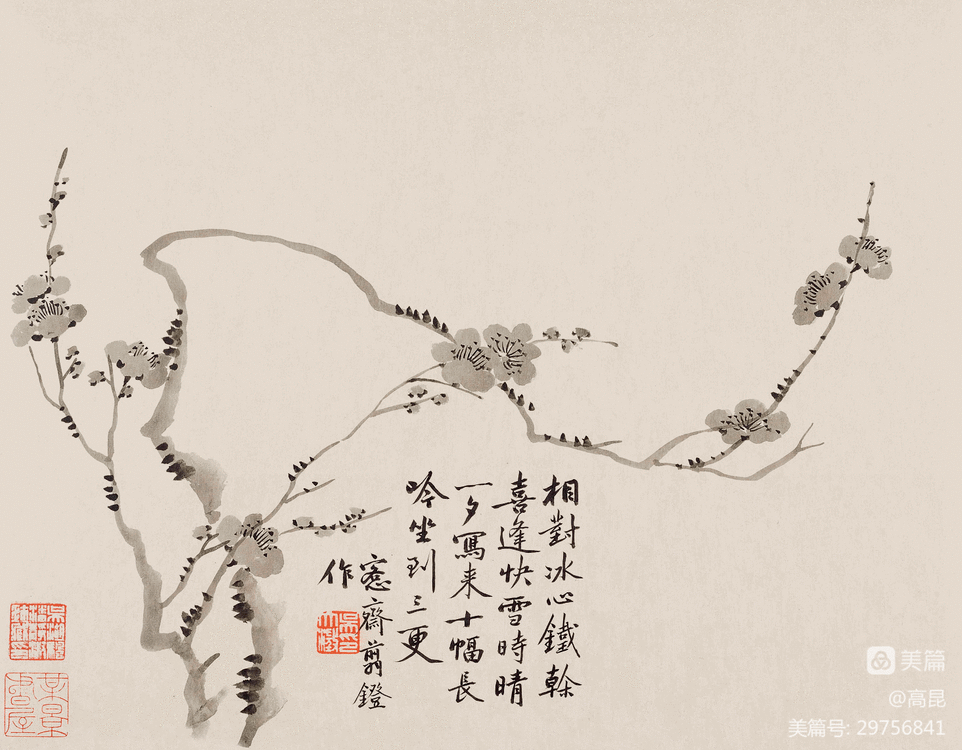 相對冰心鐵幹
喜逢快雪時晴
一夕寫来十幅長
吟坐到三更
窓齋翦鐙
作
美篇
@高昆
美篇号: 29756841